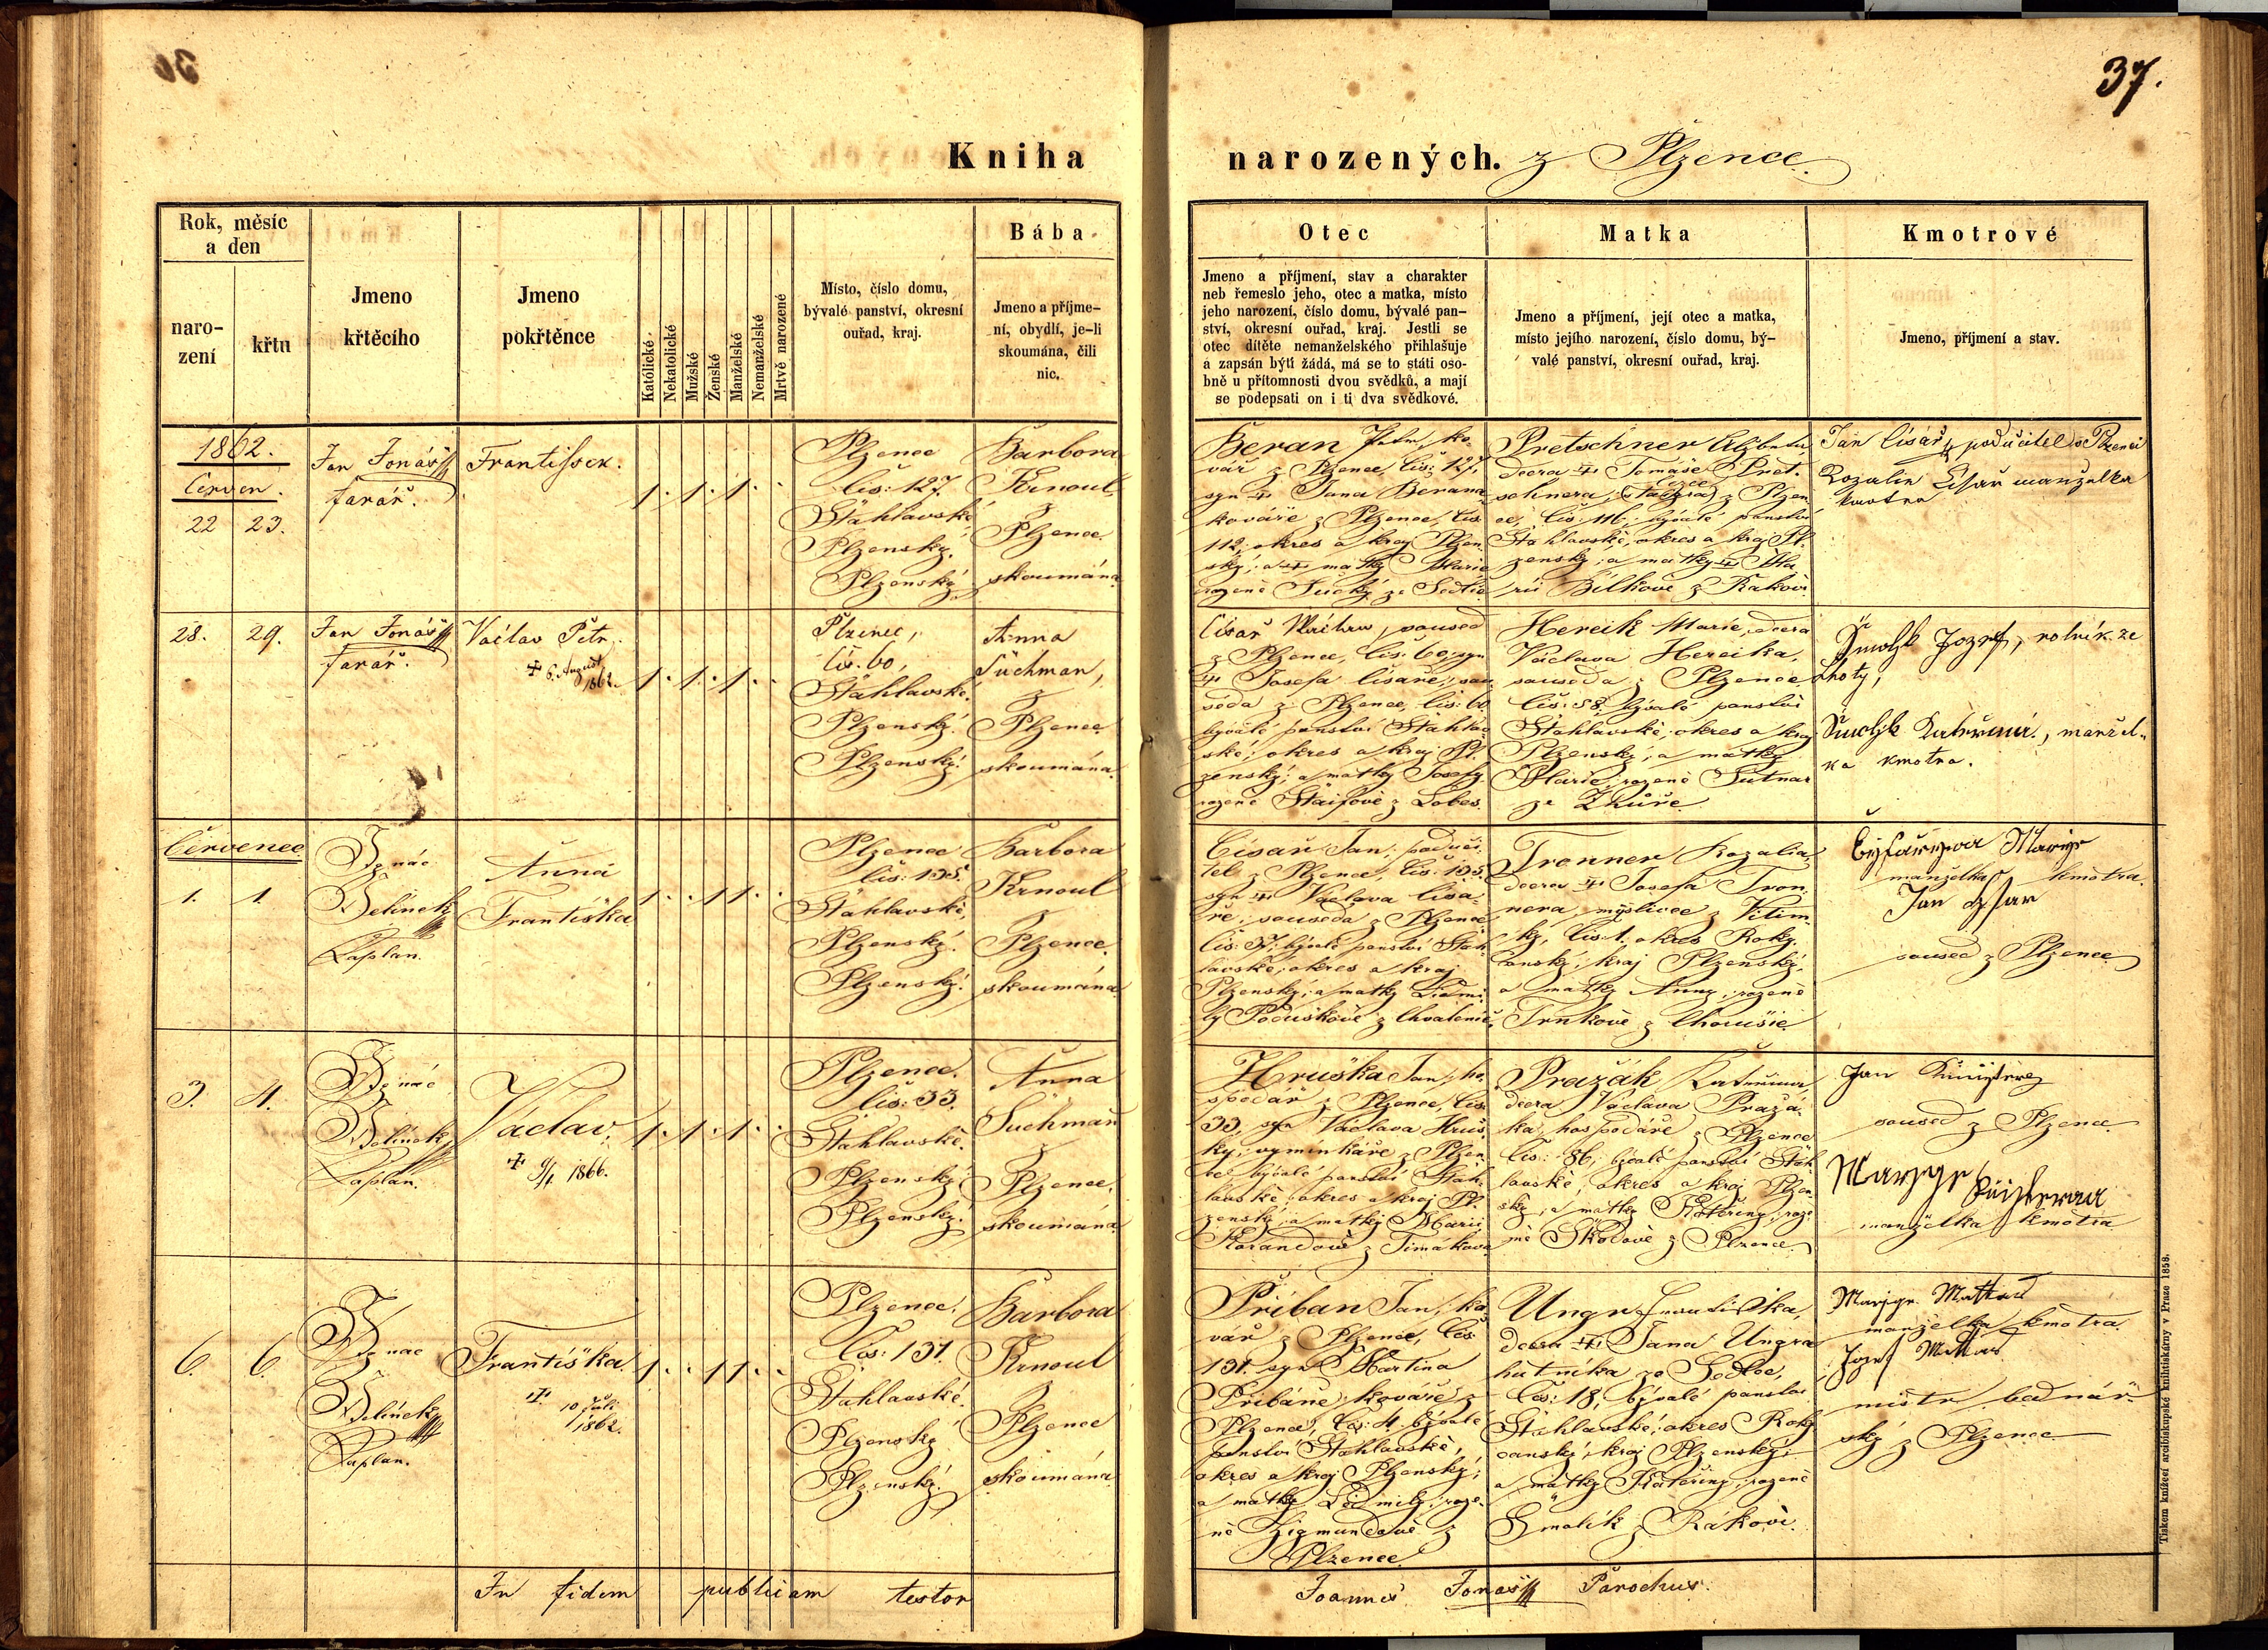 37.
Kniha narozených. z Plzence
Rok, měsíc
a den
naro-
zení
křtu
Jmeno
křtěcího
Jmeno
pokřtěnce
Katólické
Nekatolické
Mužské
Ženské
Manželské
Nemanželské
Mrtvě narozené
Místo, číslo domu,
bývalé panství, okresní
ouřad, kraj.
Bába
Jmeno a příjme-
ní, obydlí, je-li
skoumána, čili
nic.
Otec
Jmeno a příjmení, stav a charakter
neb řemeslo jeho, otec a matka, místo
jeho narození, číslo domu, bývalé pan-
ství, okresní ouřad, kraj. Jestli se
otec dítěte nemanželského přihlašuje
a zapsán býti žádá, má se to státi oso-
bně u přítomnosti dvou svědků, a mají
se podepsati on i ti dva svědkové.
Matka
Jmeno a příjmení, její otec a matka,
místo jejího narození, číslo domu, bý-
valé panství, okresní ouřad, kraj.
Kmotrové
Jmeno, příjmení a stav.
1862.
Červen.
22 23.
Jan Jonáš
farář.
Frantissek.
1. 1. 1.
Plzenec
čís: 127.
Štáhlavské
Plzenský.
Plzenský
Barbora
Krnoul
z
Plzence
skoumána
Beran Petr, ko-
vář z Plzence, čís: 127,
syn † Jana Berana
kováře z Plzence, čís
112; okres a kraj Plzen-
ský; a † matky Marie
rozené Suchý ze Sedlce
Pretschner Alžběta,
dcera † Tomáše Pret-
schnera, z Plzen-
ce, čís: 116, bývalé panství
Štáhlavské, okres a kraj Pl-
zenský; a matky † Ma-
rie Bílkové z Rakové
Jan Císař, podučitel v Plzenci
Rozalie Císař manželka
kmotra
28. 29.
Jan Jonáš
farář.
Václav Petr.
† 6. August
1862.
1. 1. 1.
Plzenec,
čís. 60,
Štáhlavské.
Plzenský.
Plzenský.
Anna
Suchman,
z
Plzence
skoumána.
Císař, soused
z Plzence, čís: 60, syn
† Josefa Císaře, sou-
seda z Plzence, čís: 60
bývalé panství Štáhlav-
ské; okres a kraj Pl-
zenský; a matky Josefy
rozené Štaifové z Lobes.
Hercik Marie, dcera
Václava Hercika,
souseda z Plzence
čís: 58. bývalé panství
Štáhlavské, okres a kraj
Plzenský; a matky
Marie rozené Sutnar
ze Zhůře
Josef, rolník ze
Lhoty,
Kateřina, manžel-
ka kmotra.
Červenec
1. 1.
Ignác
Belínek
Kaplan.
Anna
Františka
1. . 1 1.
Plzenec
čís: 135.
Štáhlavské,
Plzenský.
Plzenský.
Barbora
Krnoul
z
Plzence.
skoumána
Císař Jan, poduči-
tel z Plzence, čís: 135.
syn † Václava Císa-
ře, souseda z Plzence
čís: 37; bývalé panství Štáh-
lavské, okres a kraj
Plzenský; a matky Ludmi-
ly Poduškové z Chválenic
Tronner Rozalia,
dcera † Josefa Tron-
nera, myslivce z Vitín-
ky, čís: 1. okres Roky-
canský; kraj Plzenský,
a matky Anny, rozené
Trnkové z Choušic
Marije
manželka kmotra.
Jan
soused z Plzence
3. 4.
Ignác
Belínek
Kaplan.
Václav,
† 9/1 1866.
1. 1. 1.
Plzenec.
čís: 33.
Štáhlavské.
Plzenský
Plzenský.
Anna
Suchman
z
Plzence,
skoumána
Hruška Jan, ho-
spodář z Plzence, čís
33, syn Václava Hruš-
ky, vyminkáře z Plzen-
ce bývalé panství Štáh-
lavské, okres a kraj Pl-
zenský; a matky Marie
Korandové z Timákova
Pražák Kateřina
dcera Václava Pražá-
ka, hospodáře z Plzence
čís: 86; bývalé panství Štáh-
lavské, okres a kraj Plzen-
ský; a matky Kateřiny, roze-
né Škodové z Plzence
Jan
soused z Plzence
Maryje
manželka kmotra
6. 6.
Ignac
Belínek
Kaplan.
Františka
† 10 Juli
1862.
1. . 1 1.
Plzenec.
čís: 131.
Štáhlavské.
Plzenský
Plzenský.
Barbora
Krnoul
z
Plzence
skoumána
Přiban Jan, ko-
vář z Plzence, čís
131. syn Martina
Přibáně, kováře z
Plzence, čís: 4. bývalé
panství Štáhlavské,
okres a kraj Plzenský;
a matky Ludmily, roze-
né Zigmundové z
Plzence
Ungr Františka,
dcera † Jana Ungra
hutníka ze Sedlce,
čís: 18, bývalé panství
Štáhlavské, okres Roky-
canský, kraj Plzenský;
a matky Kateřiny, rozené
Smolík z Rakové.
manželka kmotra.
Jozef
mistr bednář-
ský z Plzence
In fidem publicam testor
Joannes Jonáš Parochus.
Tiskem knížecí arcibiskupské knihtiskárny v Praze 1858.